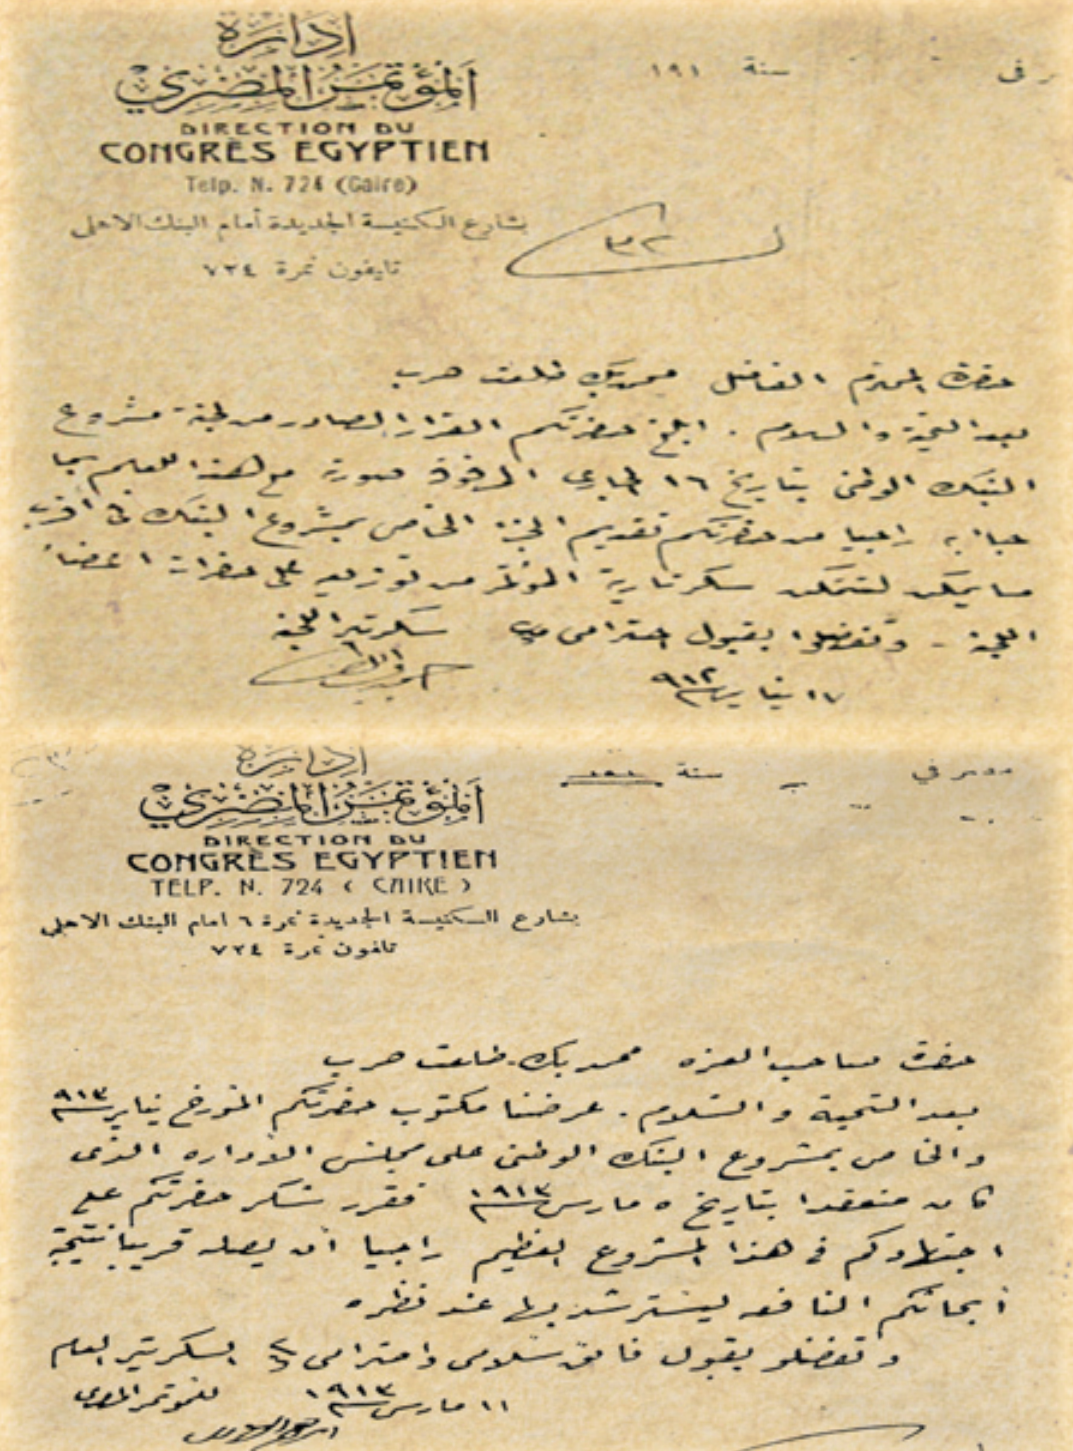 إدارة
المؤتمر المصري
DIRECTION DU
CONGRÈS EGYPTIEN
Telp. N. 724 (Caire)
بشارع الكنيسة الجديدة أمام البنك الاهلى
تليفون نمرة ٧٢٤
فى سنة ١٩١
حضرة المحترم الفاضل محمد بك طلعت حرب
بعد التحية والسلام . ابلغ حضرتكم القرار الصادر من لجنة مشروع
البنك الوطنى بتاريخ ١٦ الجارى المرفوق صورته مع هذا للعلم بما
جاء به راجيا من حضرتكم تقديم الخاص بمشروع البنك فى أقرب
ما يمكن لتتمكن سكرتارية المؤتمر من توزيعه على حضرات اعضاء
اللجنة - وتفضلوا بقبول احترامى سكرتير اللجنة
١٧ يناير ٩١٢
إدارة
المؤتمر المصري
DIRECTION DU
CONGRÈS EGYPTIEN
TELP. N. 724 ( CAIRE )
بشارع الكنيسة الجديدة نمرة ٦ امام البنك الاهلي
تلفون نمرة ٧٢٤
مصر في سنة ١٩١
حضرة صاحب العزه محمد بك طلعت حرب
بعد التحية والسلام . عرضنا مكتوب حضرتكم المؤرخ يناير ٩١٣
والخاص بمشروع البنك الوطنى على مجلس الأداره الذى
كان منعقدا بتاريخ ٥ مارس ١٩١٣ فقرر شكر حضرتكم على
اجتهادكم فى هذا المشروع العظيم راجيا أن يصله قريبا نتيجة
أبحاثكم النافعه ليسترشد بها عند نظره
وتفضلو بقبول فائق سلامى واحترامى السكرتير العام
١١ مارس ١٩١٣ للمؤتمر المصرى